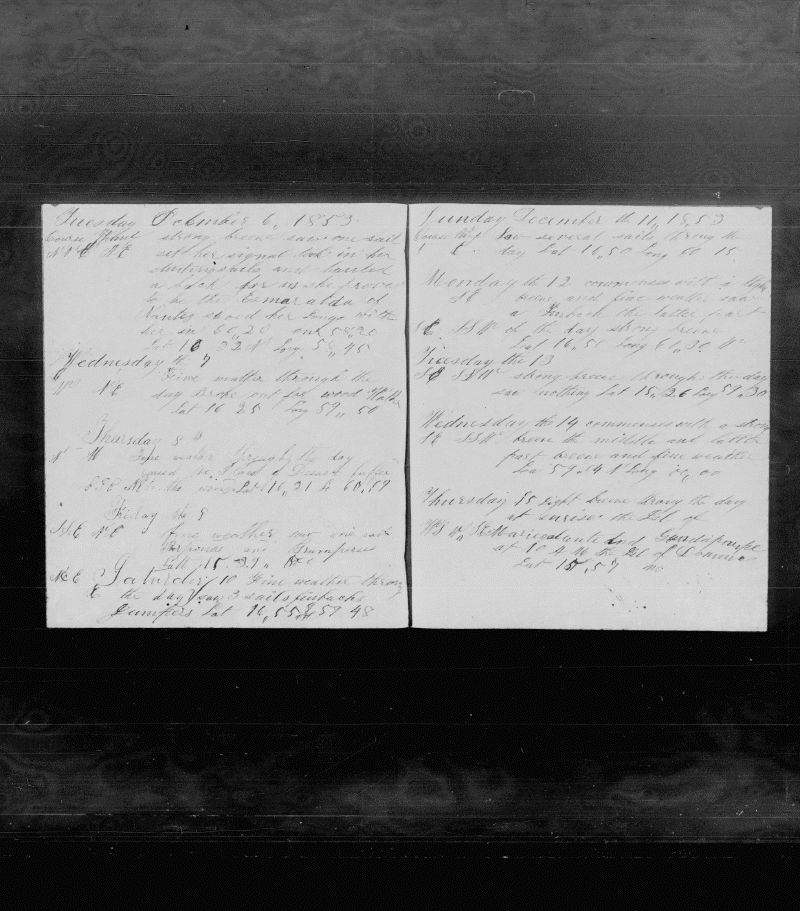 Tuesday December 6, 1853
Course Wind strong breeze saw one sail
NNE NE set her signal took in her
studingsails and hauted
a back for us she proved
to be the Esmaralda of
Nantes stood her longe with
her in 60,,20 out 58,,20
Lat 16 32 N Long 58,,45
Wednesday the 7
NE Fine wather through the
day Broke out for wood Water
Lat 16 25 Long 59,,50
Thursday 8
Fine wather through the day
the Lat 16,,21 Lo 60,,19
Friday the 9
SSE NE fine weather saw one sail
Porpoises and Grampuses
Latt 15 39,,
NE Saturday 10 Fine weather throug
E the day saw 3 sails finbacks
Jumpers Lat 16,,55 59 48
Sunday December th 11,, 1853
Course Wind saw several sails throug the
E day Lat 16,50 Long 60 15
Monday the 12 commences with a light
SE breeze and fine weather saw
a Finback the latter part
SE SSW of the day strong breeze
Lat 16,,50 Long 61,,30 W
Tuesday the 13
SE SSW strong breeze through the day
see nothing Lat 15,,26 Long 59,,30
Wednesday the 14 commences with a strong
SE SSW breeze the middle and latter
part breeze and fine weather
59,,54 N Long 00,,00
Thursday 15 light breeze throug the day
at sunrise the Isl of
Mariegalante and Guadaloupe
at 10 A M the Isl of Dominic
Lat 15,,57